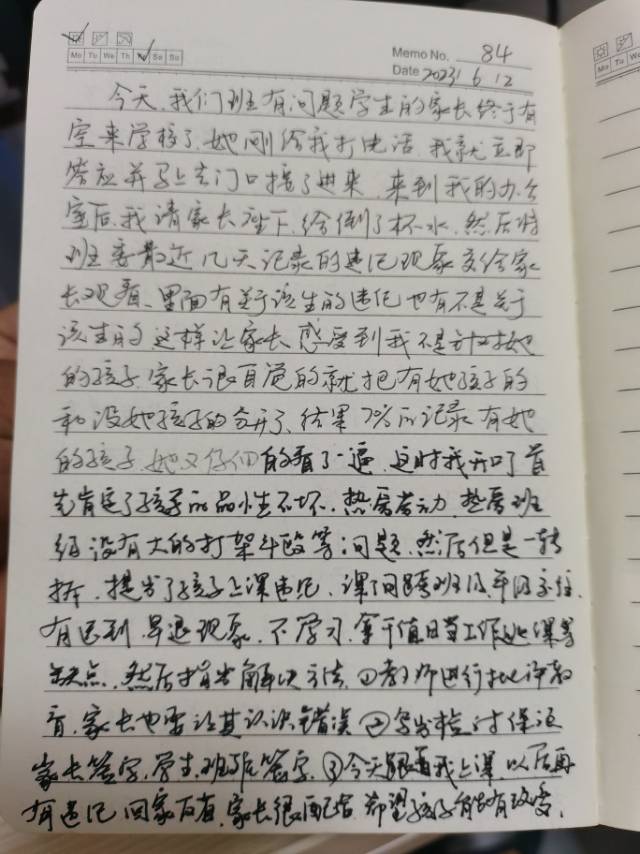 Mo Tu We Th Sa Su
Memo No. 84
Date 2023 6 12
今天,我们班有问题学生的家长终于有
空来学校了,她刚给我打电话,我就立即
答应并马上去门口接了进来,来到我的办公
室后,我请家长坐下,给倒了杯水,然后将
班委最近几天记录的违纪现象交给家
长观看、里面有关于该生的违纪也有不是关于
该生的,这样让家长感受到我不是针对她
的孩子,家长很自觉的就把有她孩子的
和没她孩子的分开了,结果 记录有她
的孩子,她又仔细的看了一遍,这时我开口了首
先肯定了孩子的品性不坏,热爱劳动,热爱班
级没有大的打架斗殴等问题,然后但是一转
折,提出了孩子上课违纪,课间 班级年级 
有迟到,早退现象,不学习,拿干值日等工作 
缺点,然后指出解决方法,①教师进行批评教
育,家长也要让其认识错误②写出检讨保证
家长签字,学生,班 签字,③今天跟着我上课,以后再
有违纪回家反省,家长很配合,希望孩子能有改变,